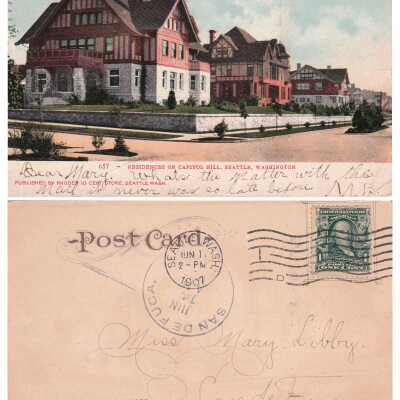 657 - RESIDENCES ON CAPITOL HILL, SEATTLE, WASHINGTON
Dear Mary, Whats the matter with the
PUBLISHED BY RHODES 10 CENT STORE, SEATTLE, WASH.
Mail it never was so late before M.B.L.
Post Card
SEATTLE, WASH.
JUN 1
2-PM
1907
SAN DE FUCA.
JUN
ONE CENT
Miss Mary Libby.
San de Fuca